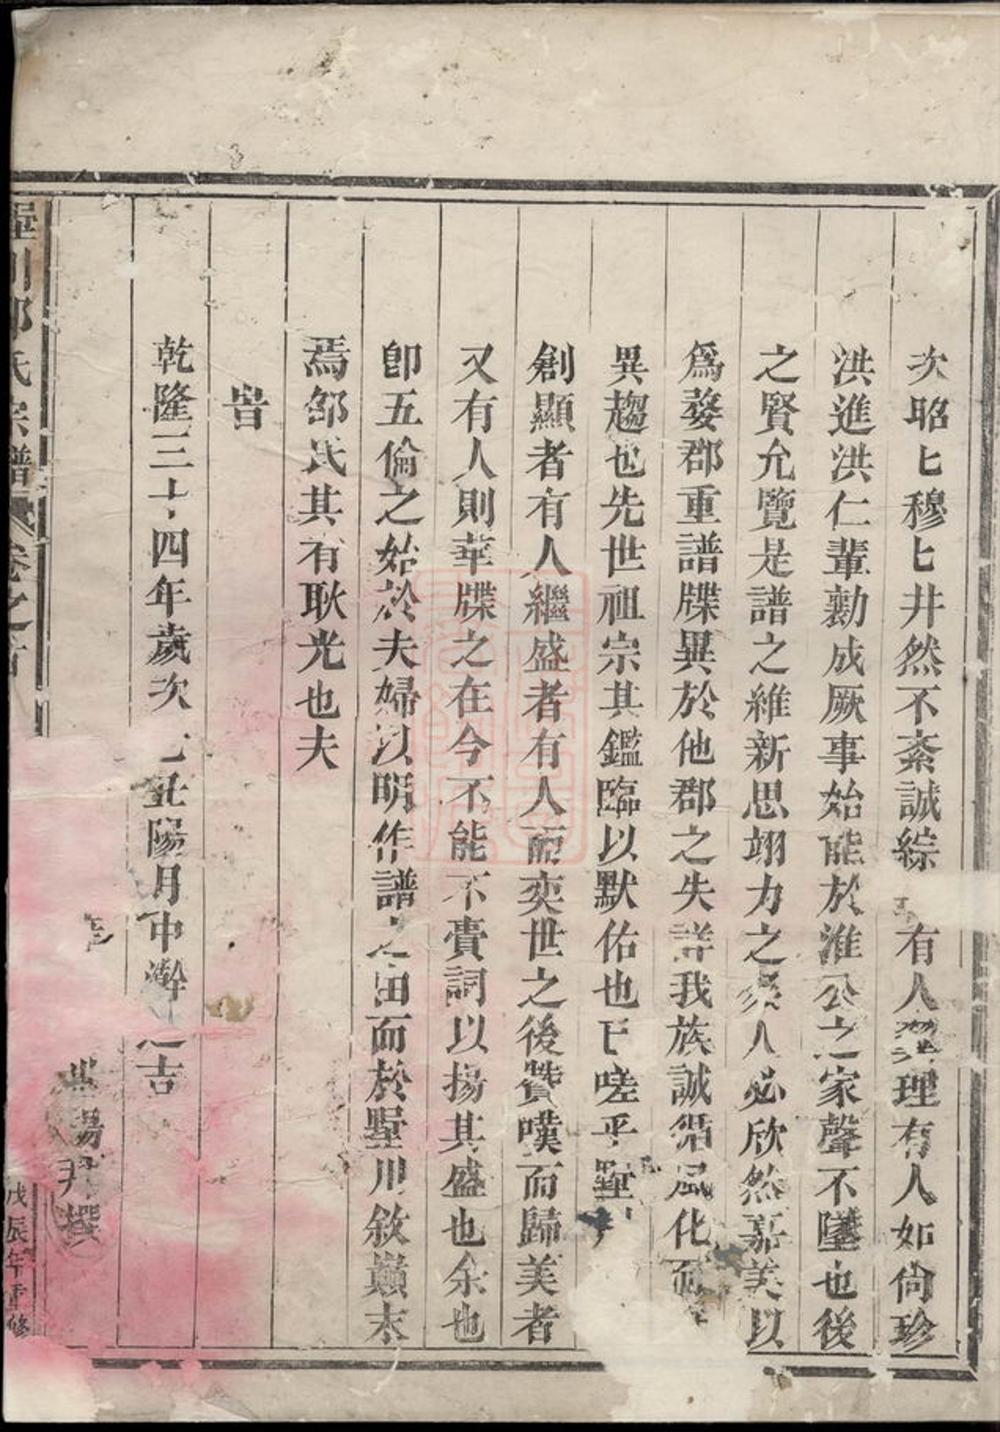 次昭匕穆匕井然不紊誠綜有人理有人如尙珍
洪進洪仁輩勷成厥事始能於淮公之家聲不墜也後
之賢允覽是譜之維新思翊力之人必欣然嘉美以
爲婺郡重譜牒異於他郡之失詳我族誠循風化而
異趨也先世祖宗其鑑臨以默佑也已嗟乎墅川
創顯者有人繼盛者有人而奕世之後贊嘆而歸美者
又有人則華牒之在今不能不費詞以揚其盛也余也
卽五倫之始於夫婦以明作譜之由而於墅川敘巔末
焉邹氏其有耿光也夫
旹
乾隆三十四年歲次己丑陽月中澣之吉
陽尹撰
墅川邹氏宗譜
卷之首
戊辰年重修